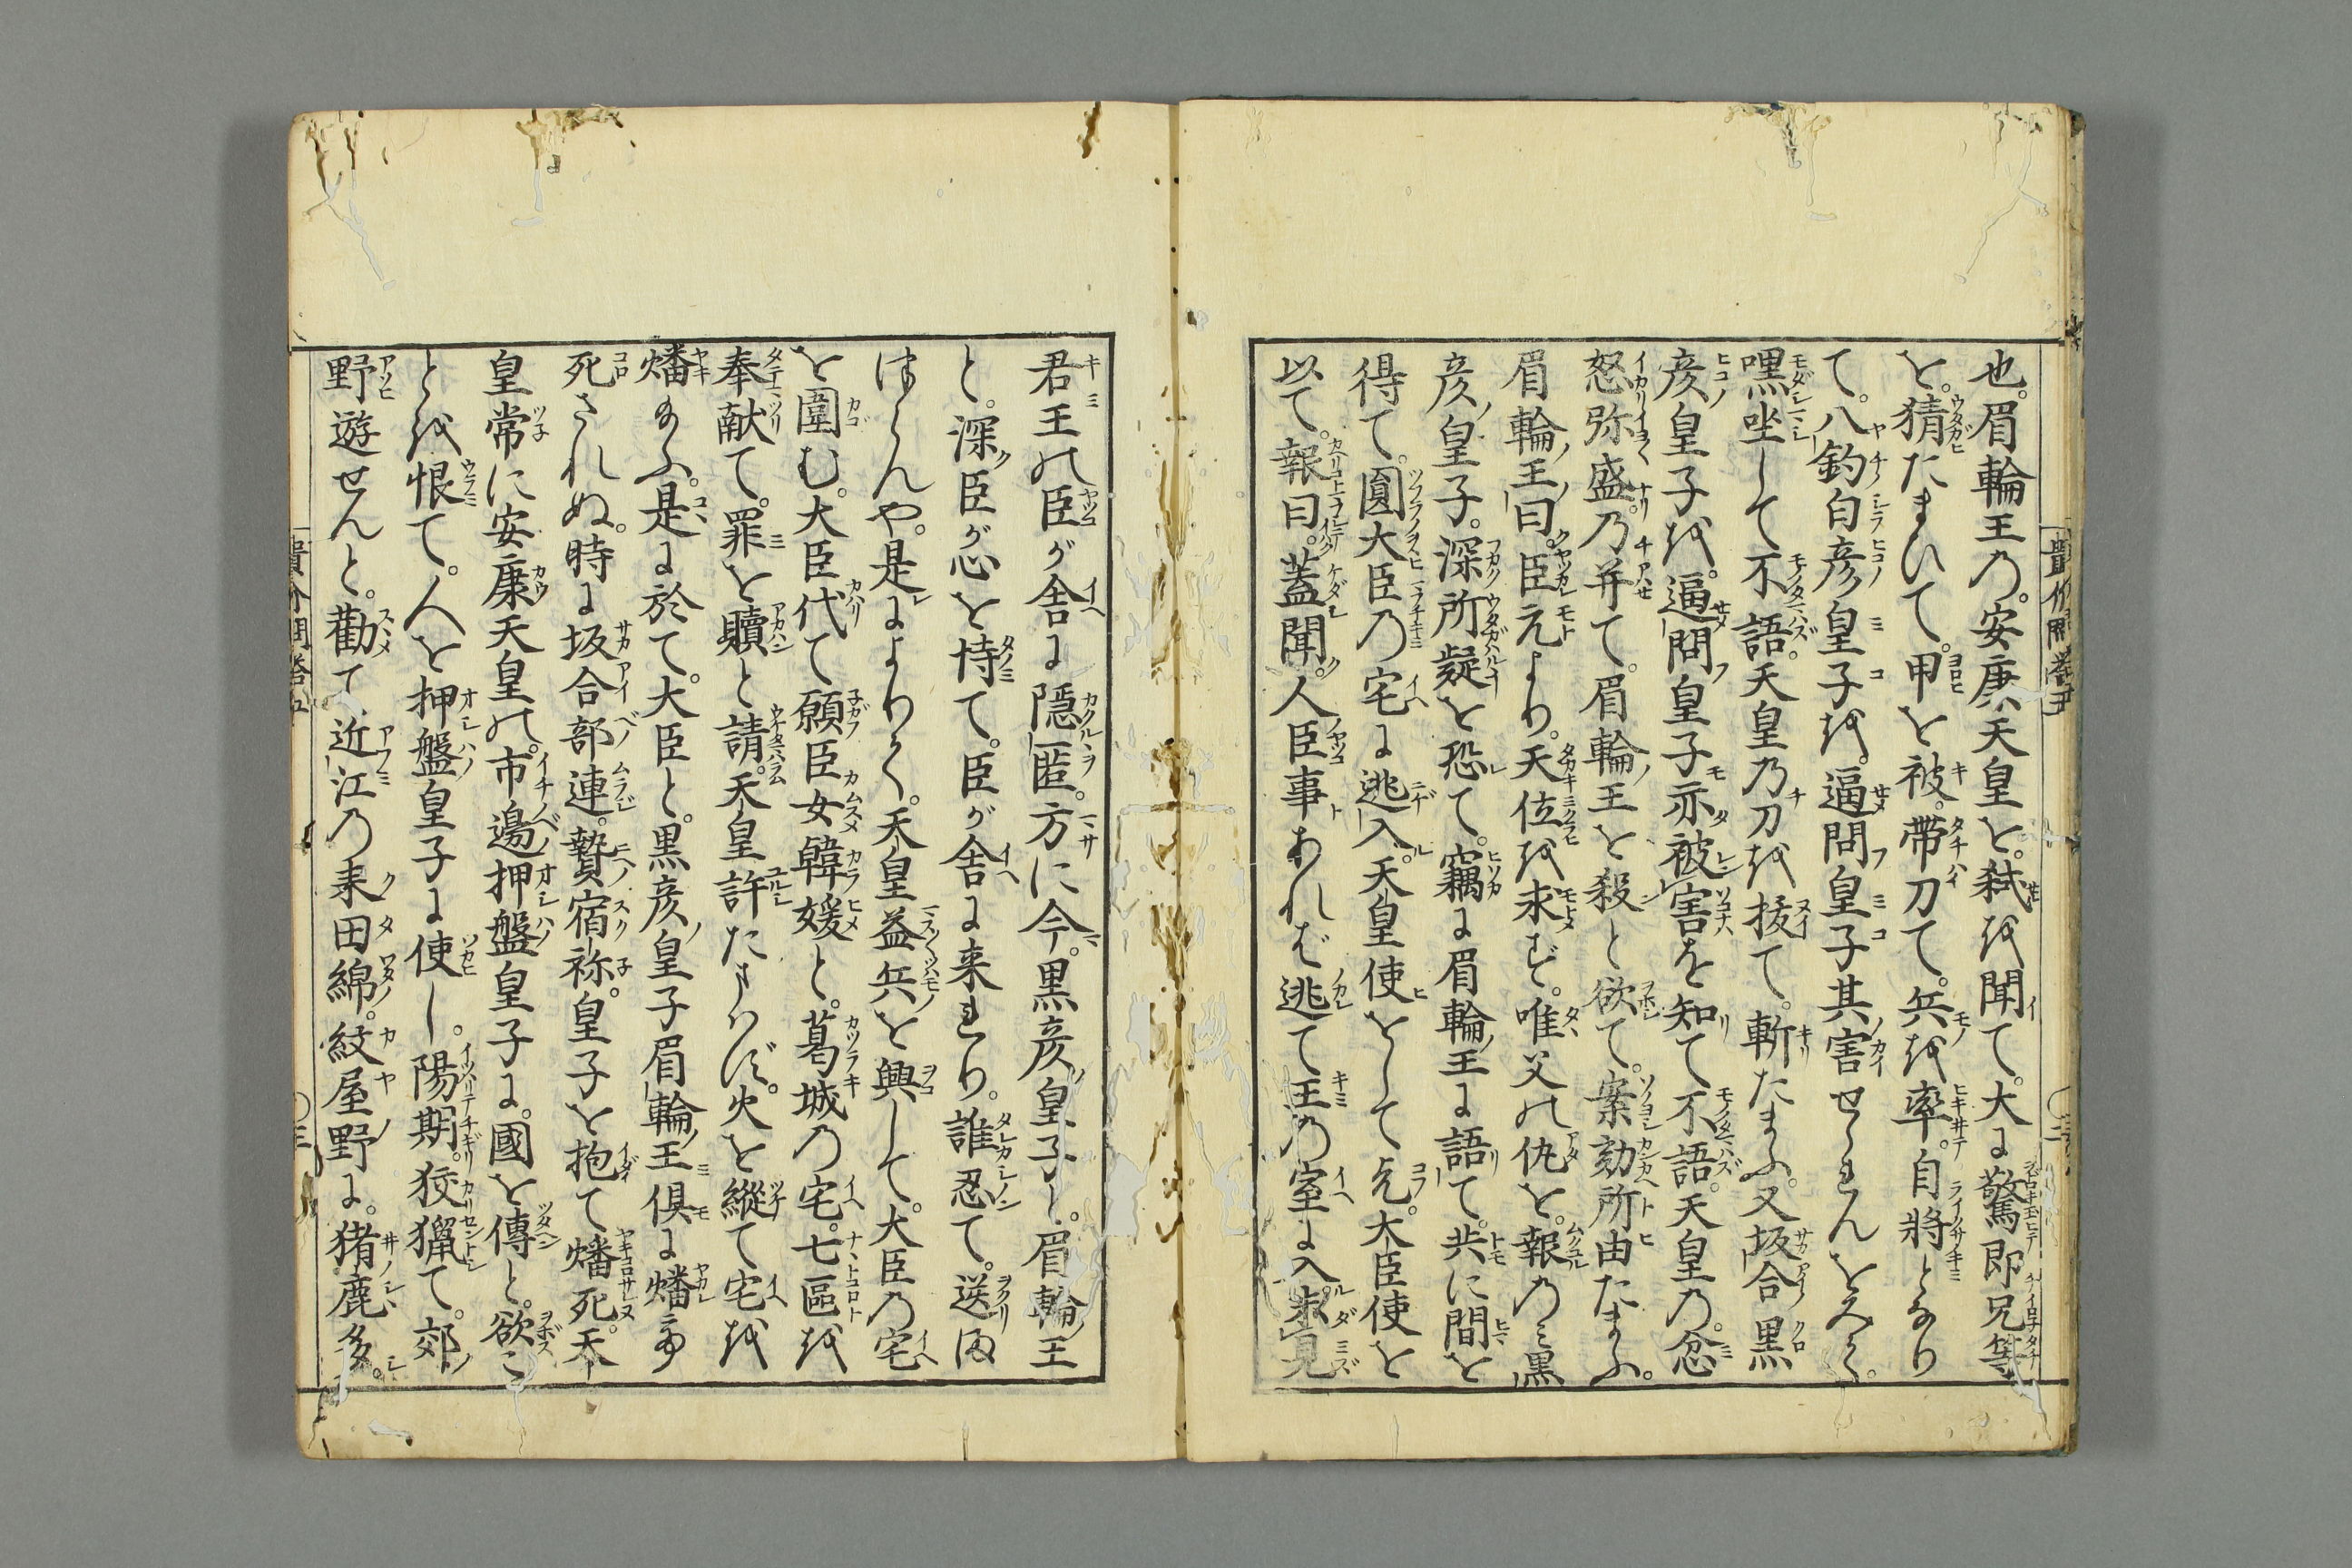 也。眉輪王乃。安康天皇と。弑を聞て。大に驚即兄等
と。猜たまいて。甲を被。帯刀て。兵を率。自将となり
て。八釣白彦皇子を。逼問皇子其害せられんをみて。
嘿坐して不語。天皇乃刀を抜て。斬たまふ。又坂合黒
彦皇子を。逼問皇子亦被害を知て不語。天皇乃。忿
怒弥盛。乃并て。眉輪王を殺と欲て。案劾所由たまふ。
眉輪王曰。臣元より。天位を求ず。唯父の仇を。報のミ黒
彦皇子。深所疑を恐て。竊に眉輪王に語て。共に間を
得て。圓大臣乃宅に逃入。天皇使をして乞。大臣使を
以て。報曰。蓋聞。人臣事あれば逃て王乃室に入。未見
君王の臣が舎に隠匿。方に今。黒彦皇子と。眉輪王
と。深臣が心を恃て。臣が舎に来れり。誰忍て。送ま
はらんや。是によりて。天皇益兵を興して。大臣乃宅
を圍む。大臣代て願臣女韓媛と。葛城の宅。七區を
奉献て。罪を贖と請。天皇許たまハず。火を縦て宅を
燔給ふ。是に於て。大臣と。黒彦皇子眉輪王倶に燔
死されぬ。時に坂合部連。贄宿祢。皇子を抱て燔死。天
皇常に安康天皇の。市邊押盤皇子に。國を傳と。欲こ
とを恨て。人を押盤皇子に使し。陽期。狡猟て。郊
野遊せんと。勸て、近江乃来田綿。紋屋野に。猪鹿多。